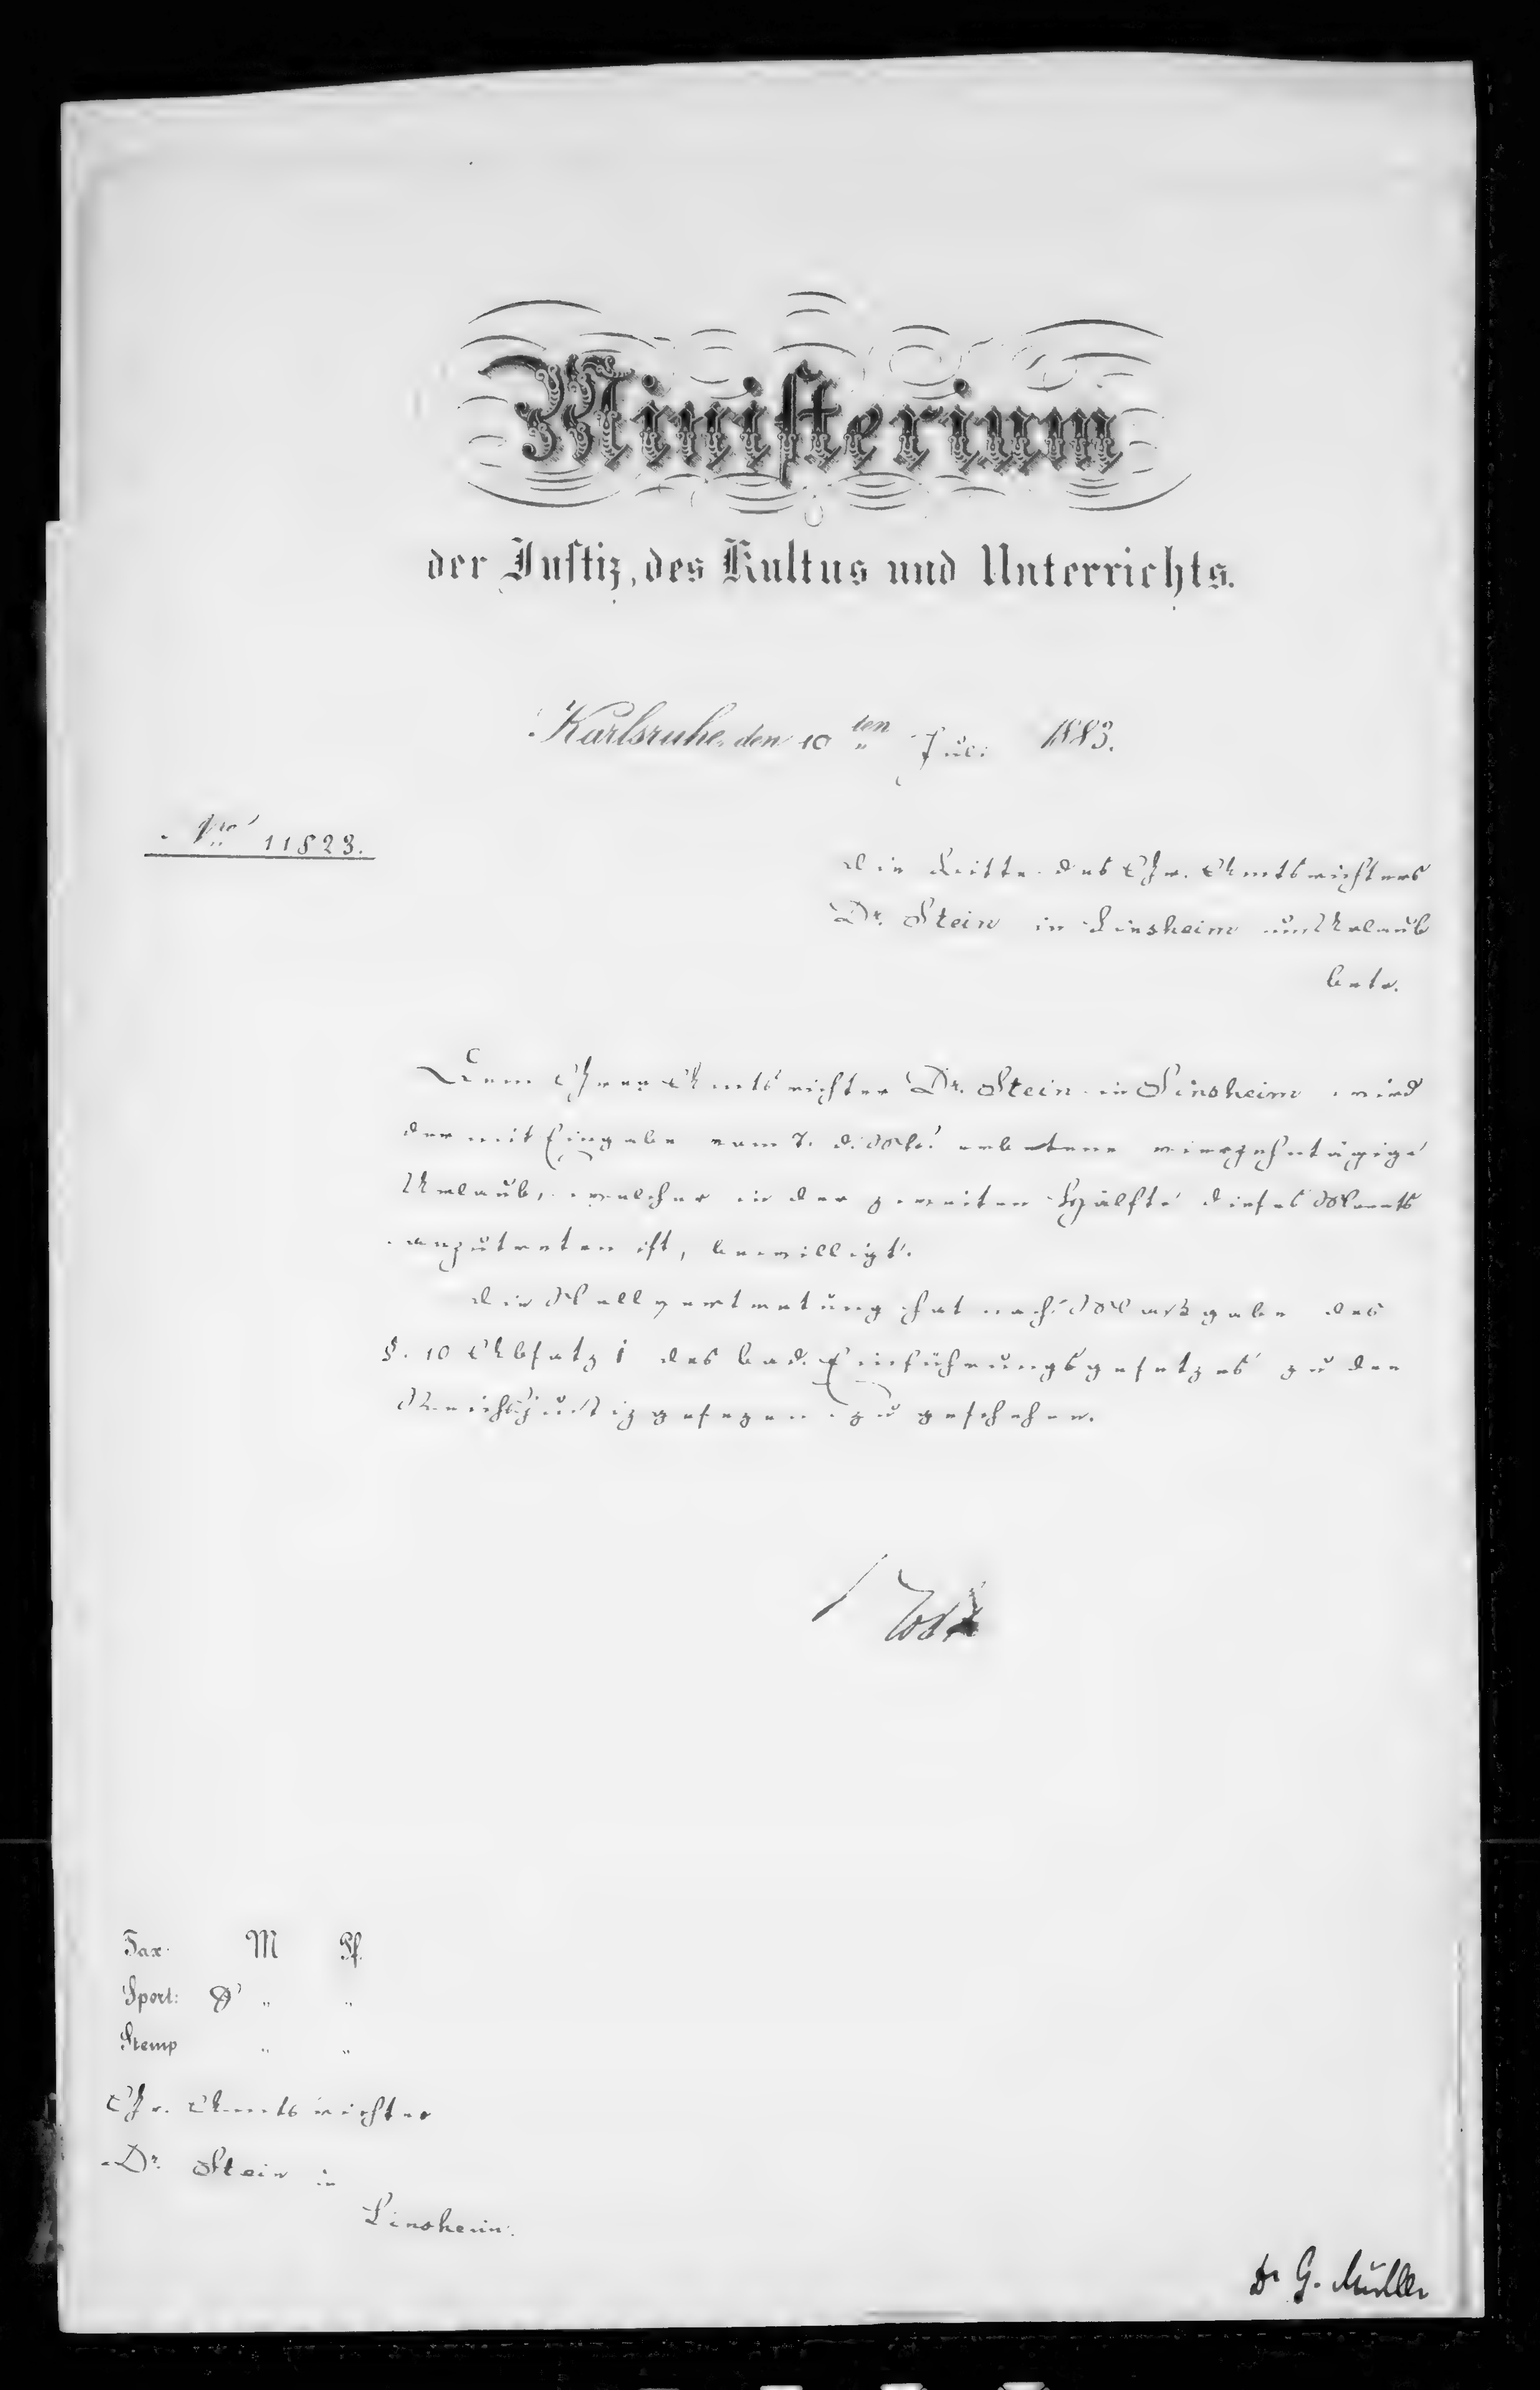 Ministerium
der Justiz, des Kultus und Unterrichts.
Karlsruhe, den 10ten Juli 1883.
Nro 11823.
Die Bitte des Hr. Amtsrichters
Dr. Stein in Sinsheim um Urlaub
betr.
Dem Herrn Amtsrichter Dr. Stein in Sinsheim wird
der mit Eingabe vom 7. d. Mts. erbetene vierzehntägige
Urlaub, welcher in der zweiten Hälfte dieses Monats
anzutreten ist, bewilligt.
Die Stellvertretung hat nach Maßgabe des
§. 10 Absatz 1 des bad. Einführungsgesetzes zu den
Reichsjustizgesezen zu geschehen.
Tax. M Pf.
Sport: „ „
Stemp „ „
Hr. Amtsrichter
Dr. Stein in
Sinsheim.
Dr G. Müller